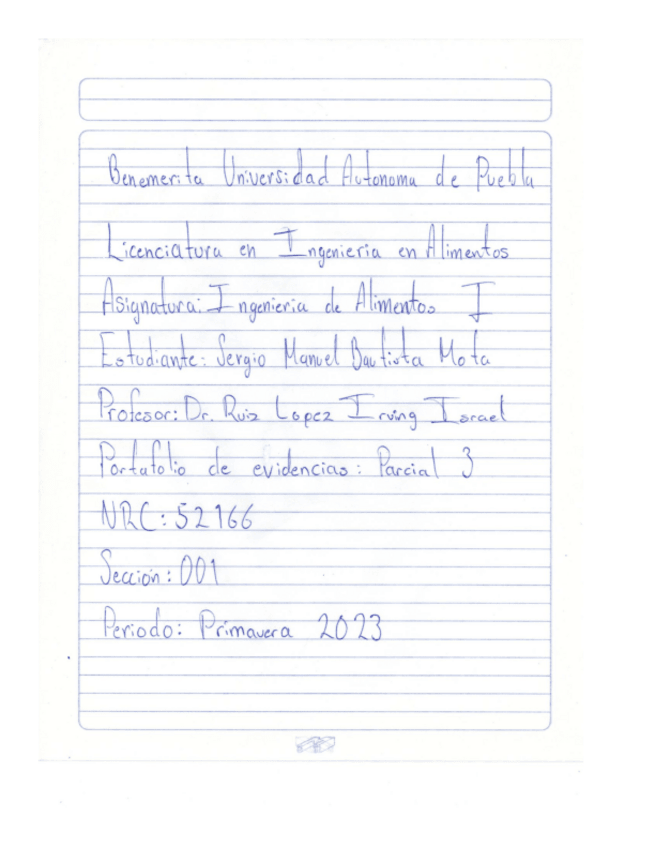 Benemerita Universidad Autonoma de Puebla
Licenciatura en Ingenieria en Alimentos
Asignatura: Ingenieria de Alimentos I
Estudiante: Sergio Manuel Bautista Mota
Profesor: Dr. Ruiz Lopez Irving Israel
Portafolio de evidencias: Parcial 3
NRC: 52166
Sección: 001
Periodo: Primavera 2023